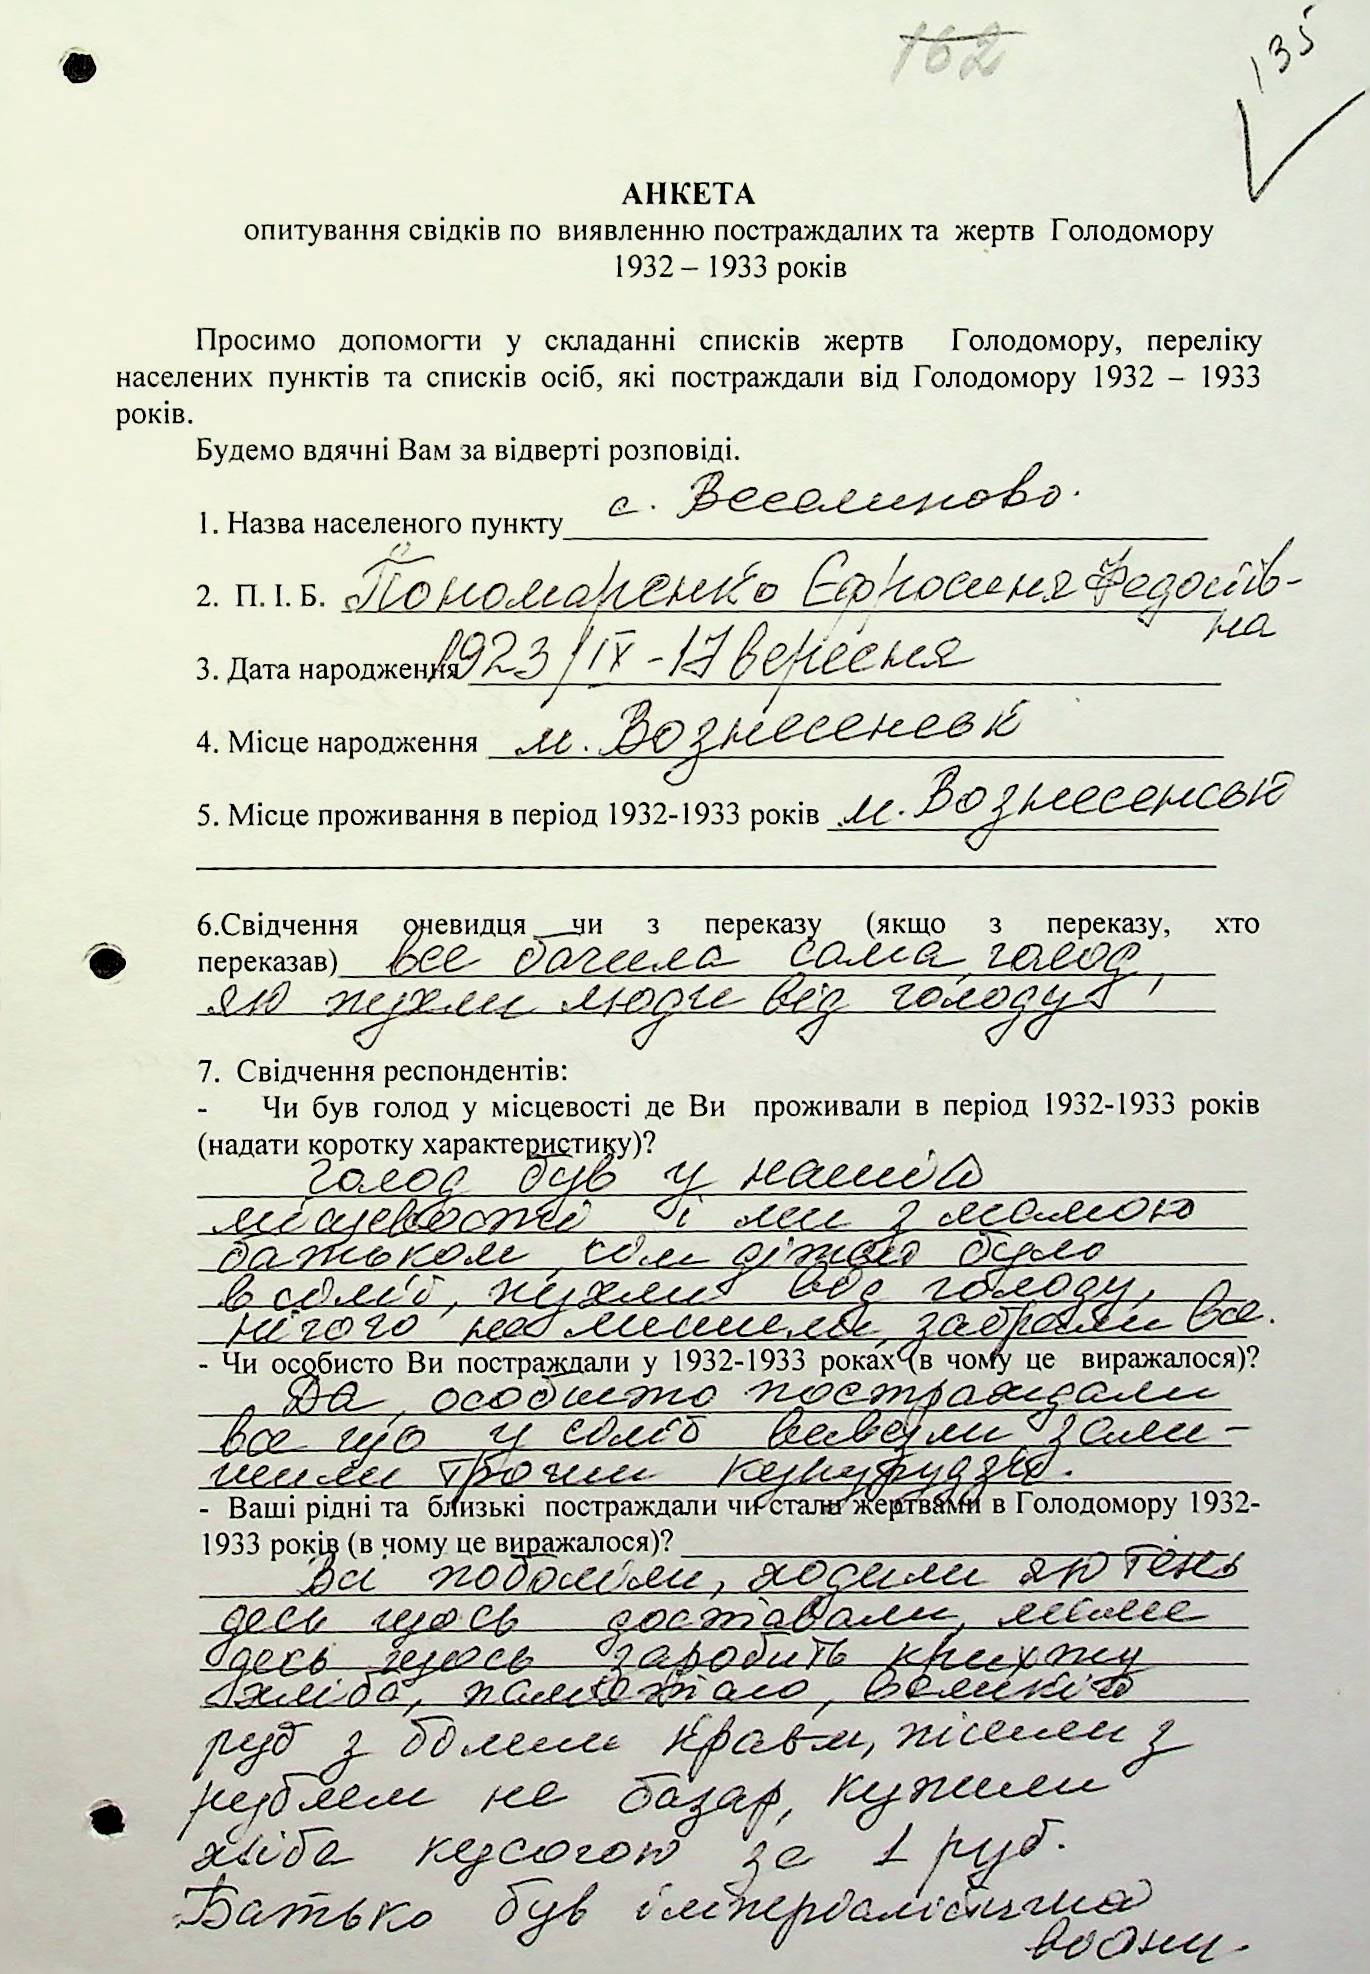 162
135
АНКЕТА
опитування свідків по виявленню постраждалих та жертв Голодомору
1932 – 1933 років
Просимо допомогти у складанні списків жертв Голодомору, переліку
населених пунктів та списків осіб, які постраждали від Голодомору 1932 – 1933
років.
Будемо вдячні Вам за відверті розповіді.
1. Назва населеного пункту с. Веселиново.
2. П. І. Б. Пономаренко Єфросиня Федосіїв-
на
3. Дата народження 1923/IX - 17 вересня
4. Місце народження м. Вознесенськ
5. Місце проживання в період 1932-1933 років м. Вознесенськ
6.Свідчення очевидця чи з переказу (якщо з переказу, хто
переказав) все бачила сама, голод,
як пухли люди від голоду
7. Свідчення респондентів:
- Чи був голод у місцевості де Ви проживали в період 1932-1933 років
(надати коротку характеристику)?
Голод був у нашій
місцевості і ми з мамою
батьком, сім діжею було
в сімії, пухли від голоду,
нічого не лишили, забрали все.
- Чи особисто Ви постраждали у 1932-1933 роках (в чому це виражалося)?
Да, особисто постраждали
все що у сімії вивезли зали-
шили трохи кукурудзи.
- Ваші рідні та близькі постраждали чи стали жертвами в Голодомору 1932-
1933 років (в чому це виражалося)?
Всі поболіли, ходили як тень
десь щось доставали, мама
десь щось заробить крихту
хліба, памятаю, великий
руб з білими краями, пішли з
рублем на базар, купили
хліба кусочок за 1 руб.
Батько був імперіалістична
войни.